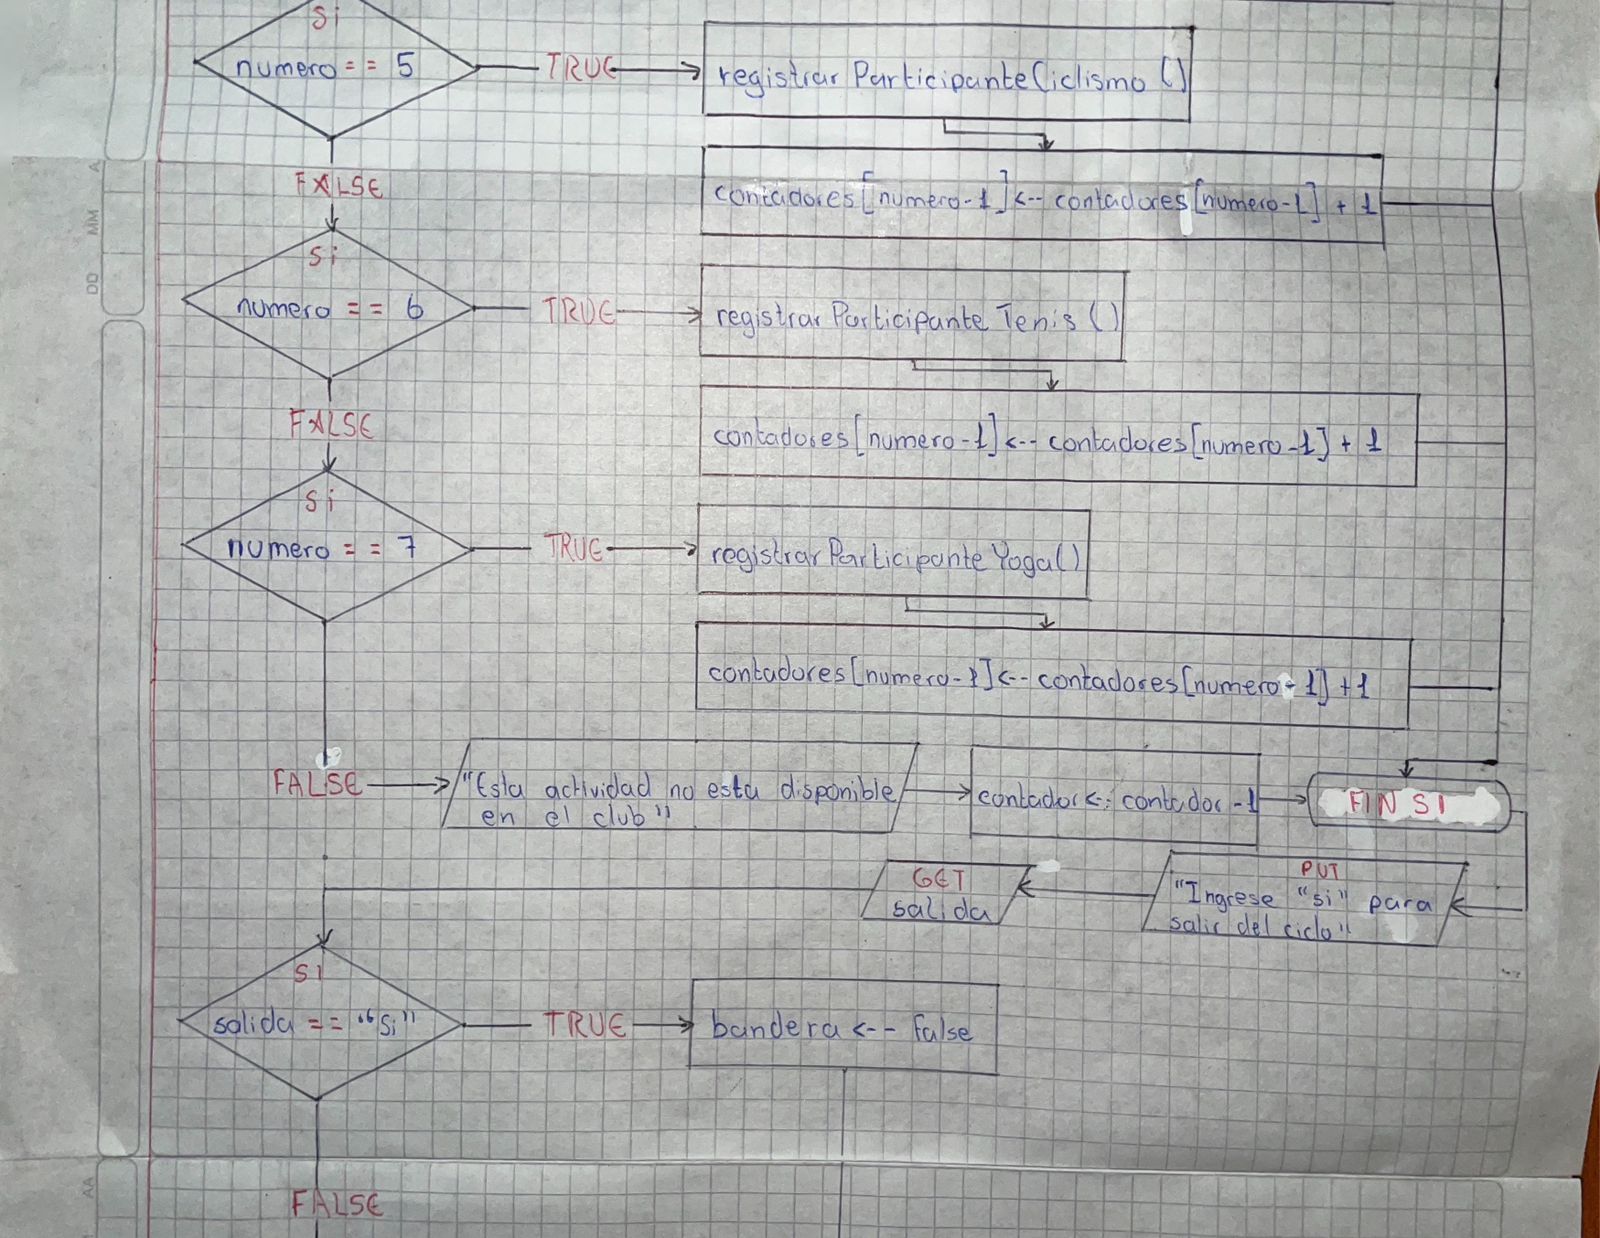 Si
numero == 5
TRUE
registrar Participante Ciclismo ()
FALSE
contadores[numero-1]<-- contadores[numero-1] + 1
Si
numero == 6
TRUE
registrar Participante Tenis ()
FALSE
contadores[numero-1]<-- contadores[numero-1] + 1
Si
numero == 7
TRUE
registrar Participante Yoga()
contadores[numero-1]<-- contadores[numero-1] +1
FALSE
"Esta actividad no esta disponible
en el club"
contador<-- contador -1
FIN SI
GET
salida
PUT
"Ingrese "si" para
salir del ciclo"
SI
salida == "Si"
TRUE
bandera <-- False
FALSE
A
MM
DD
AA